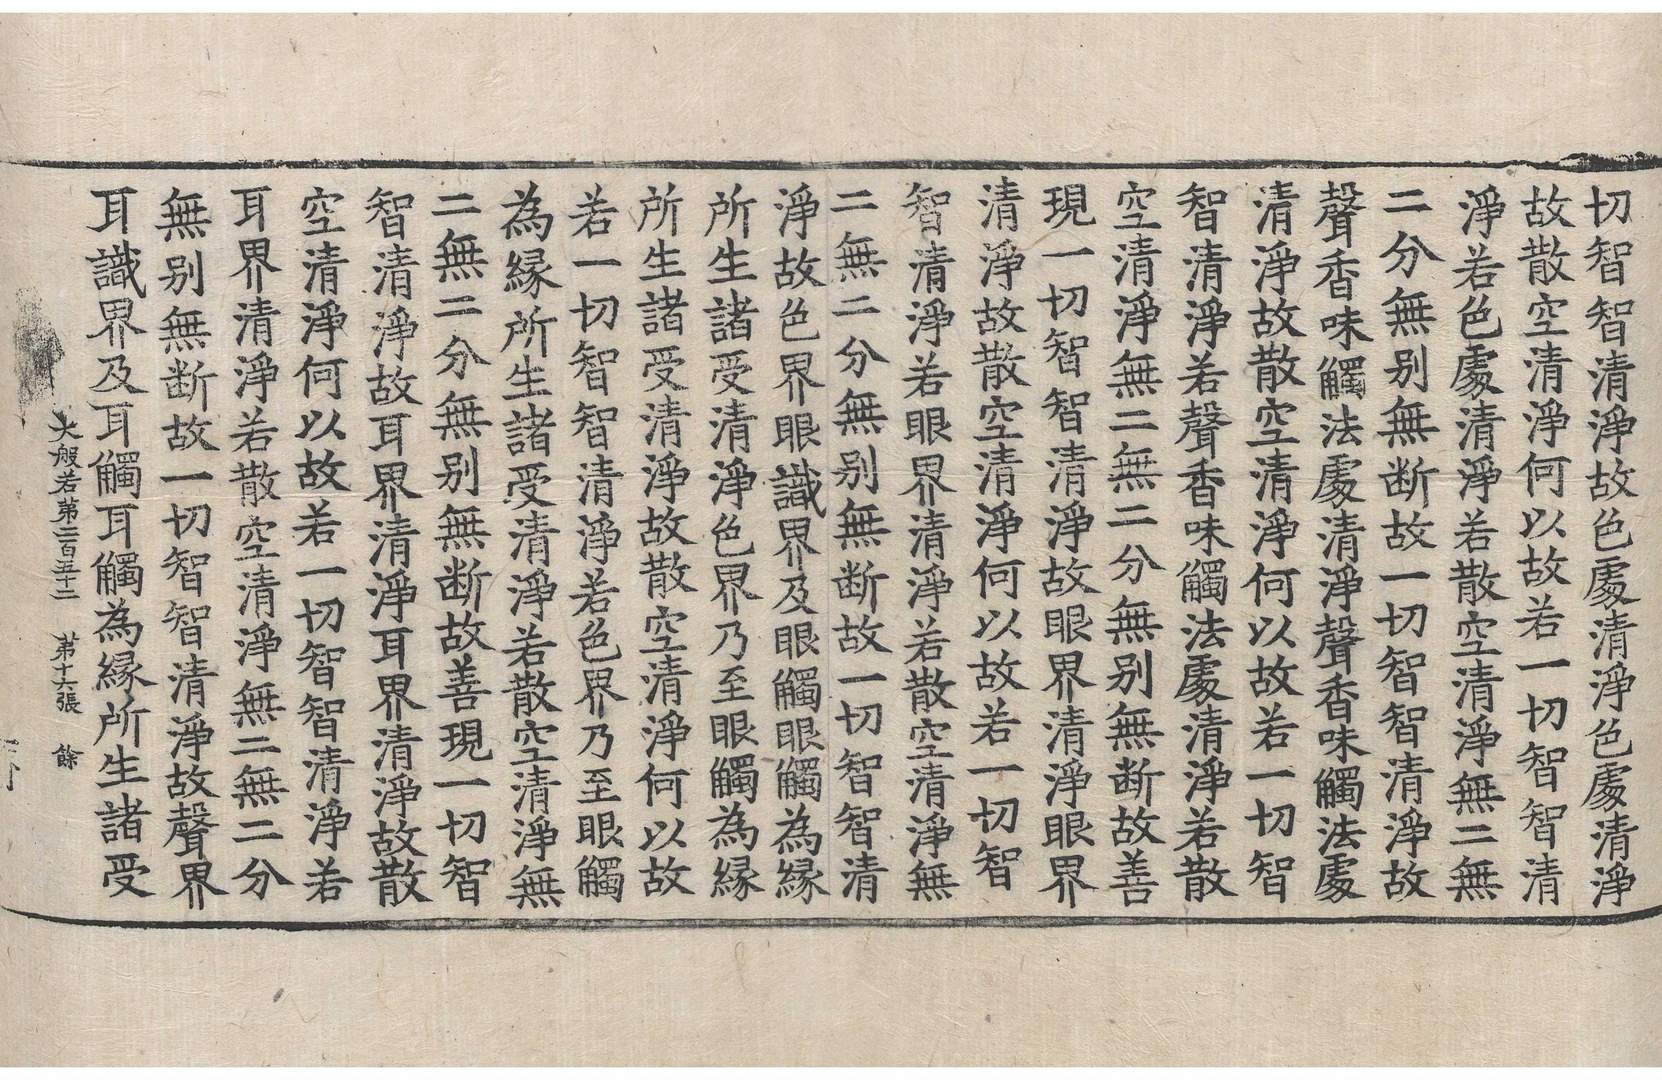 切智智清淨故色處清淨色處清淨
故散空清淨何以故若一切智智清
淨若色處清淨若散空清淨無二無
二分無别無断故一切智智清淨故
聲香味觸法處清淨聲香味觸法處
清淨故散空清淨何以故若一切智
智清淨若聲香味觸法處清淨若散
空清淨無二無二分無别無断故善
現一切智智清淨故眼界清淨眼界
清淨故散空清淨何以故若一切智
智清淨若眼界清淨若散空清淨無
二無二分無别無断故一切智智清
淨故色界眼識界及眼觸眼觸為縁
所生諸受清淨色界乃至眼觸為縁
所生諸受清淨故散空清淨何以故
若一切智智清淨若色界乃至眼觸
為縁所生諸受清淨若散空清淨無
二無二分無别無断故善現一切智
智清淨故耳界清淨耳界清淨故散
空清淨何以故若一切智智清淨若
耳界清淨若散空清淨無二無二分
無别無断故一切智智清淨故聲界
耳識界及耳觸耳觸為縁所生諸受
大般若第二百五十二 第十六張 餘